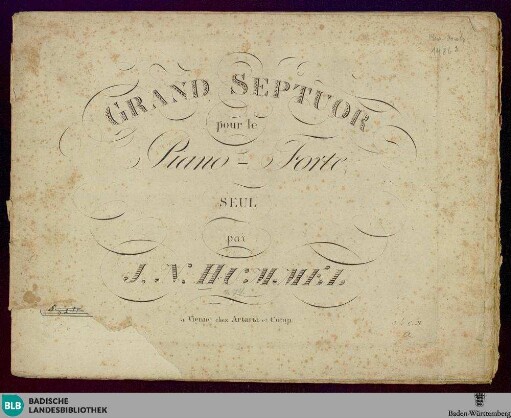 GRAND SEPTUOR
pour le
Piano = Forte
SEUL
par
J. N. HUMMEL
a Vienne chez Artaria et Comp.
BLB
BADISCHE
LANDESBIBLIOTHEK
Baden-Württemberg